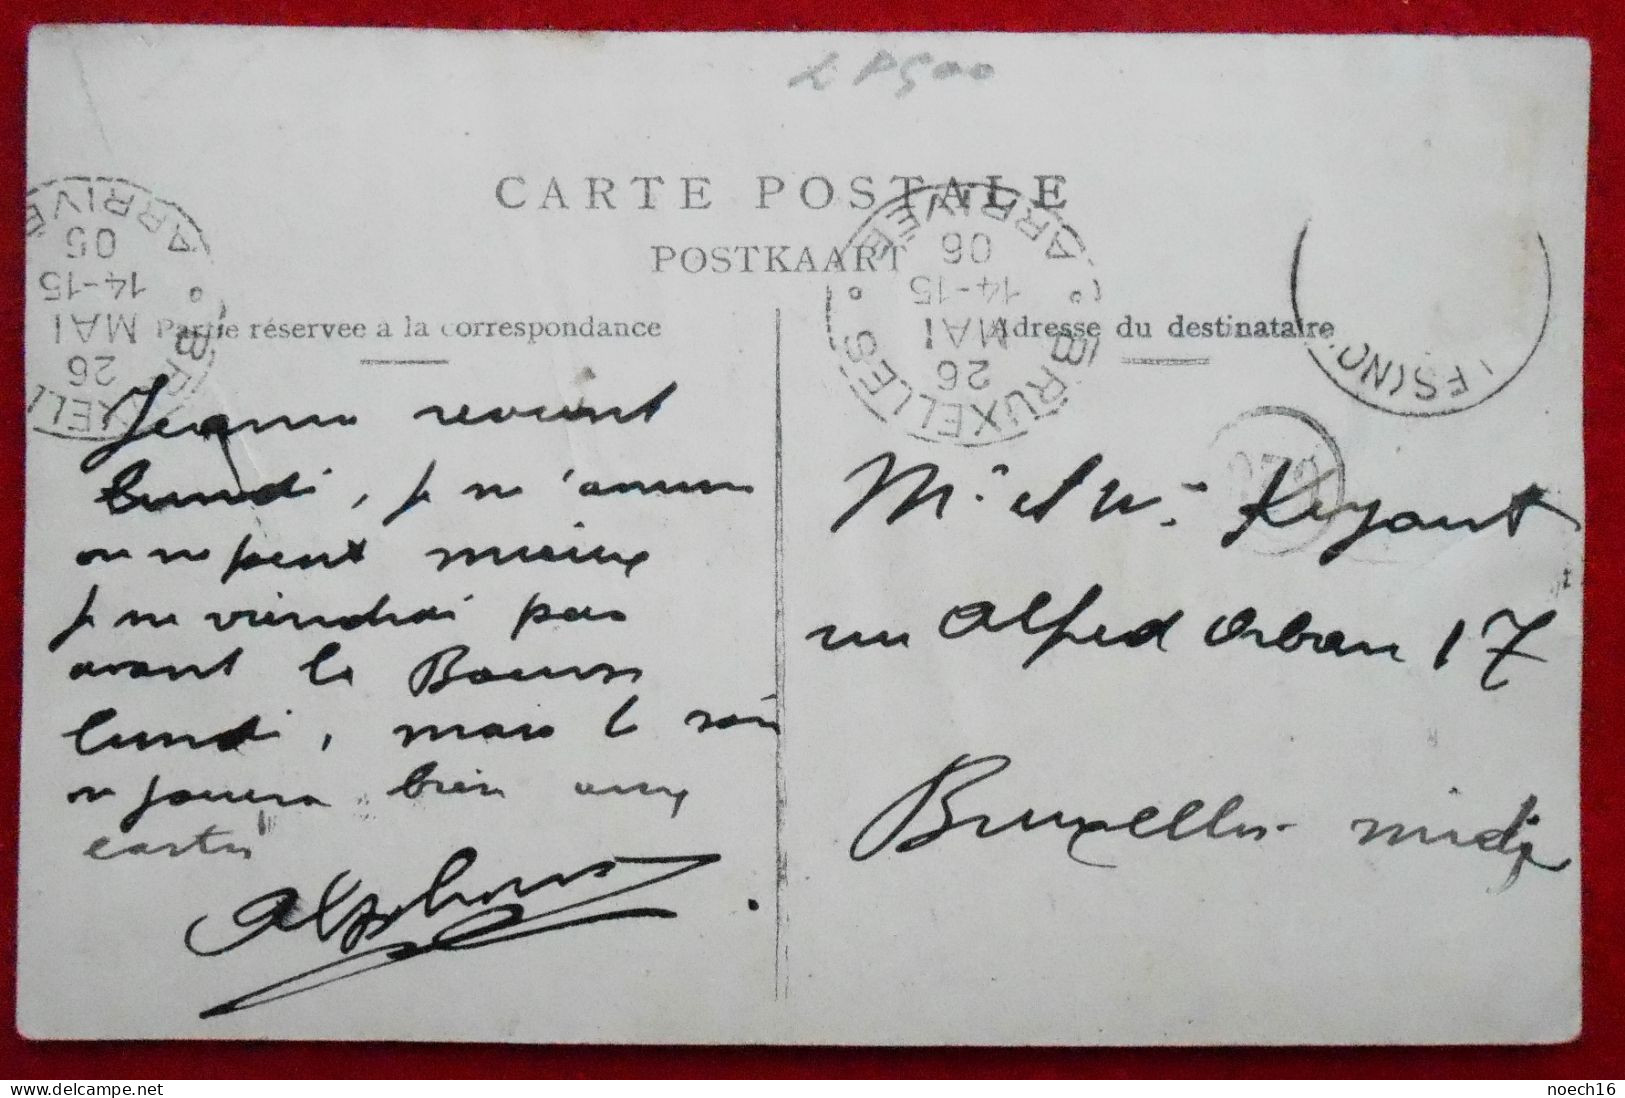 CARTE POSTALE
POSTKAART
Partie réservée à la correspondance
Adresse du destinataire
ARRIVÉE
05
14-15
MAI
26
BRUXELLES
ARRIVÉE
06
14-15
MAI
26
BRUXELLES
Jeanne revient
lundi, je m'amuse
on ne peut mieux
je ne viendrai pas
avant la Bourse
lundi, mais le soir
on jouera bien aux
cartes
Alphonse
Mr et Mme
rue Alfred Orban 17
Bruxelles-midi
www.delcampe.net
noech16